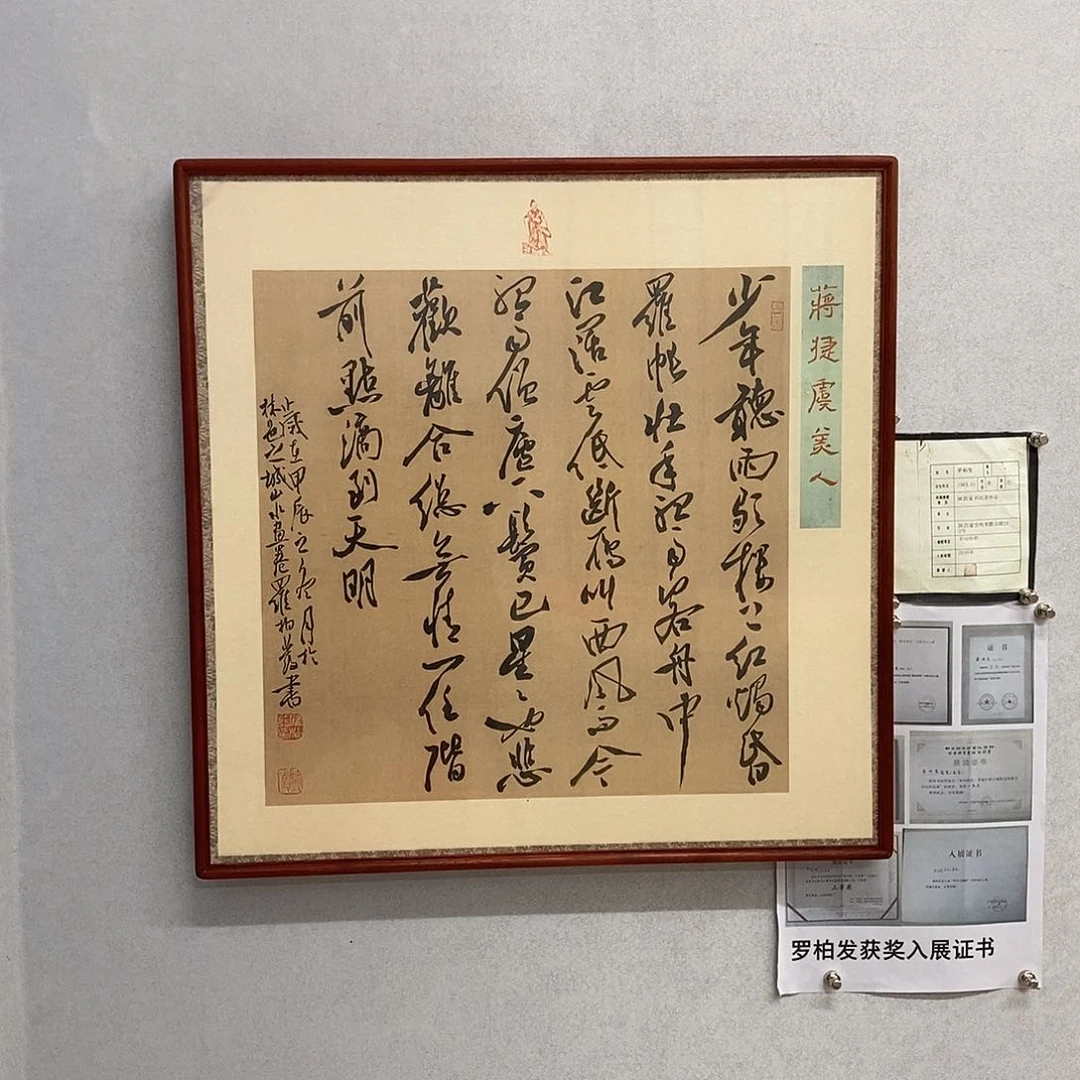 蔣捷虞美人
少年聽雨歌樓上紅燭昏
羅帳壯年聽雨客舟中
江闊云低斷雁叫西風而今
聽雨僧廬下鬢已星〻也悲
歡離合總無情一任階
前點滴到天明
歲在甲辰之冬月於
林邑之城山水畫卷羅柏發書
罗柏发
证书
入展证书
三等奖
罗柏发获奖入展证书